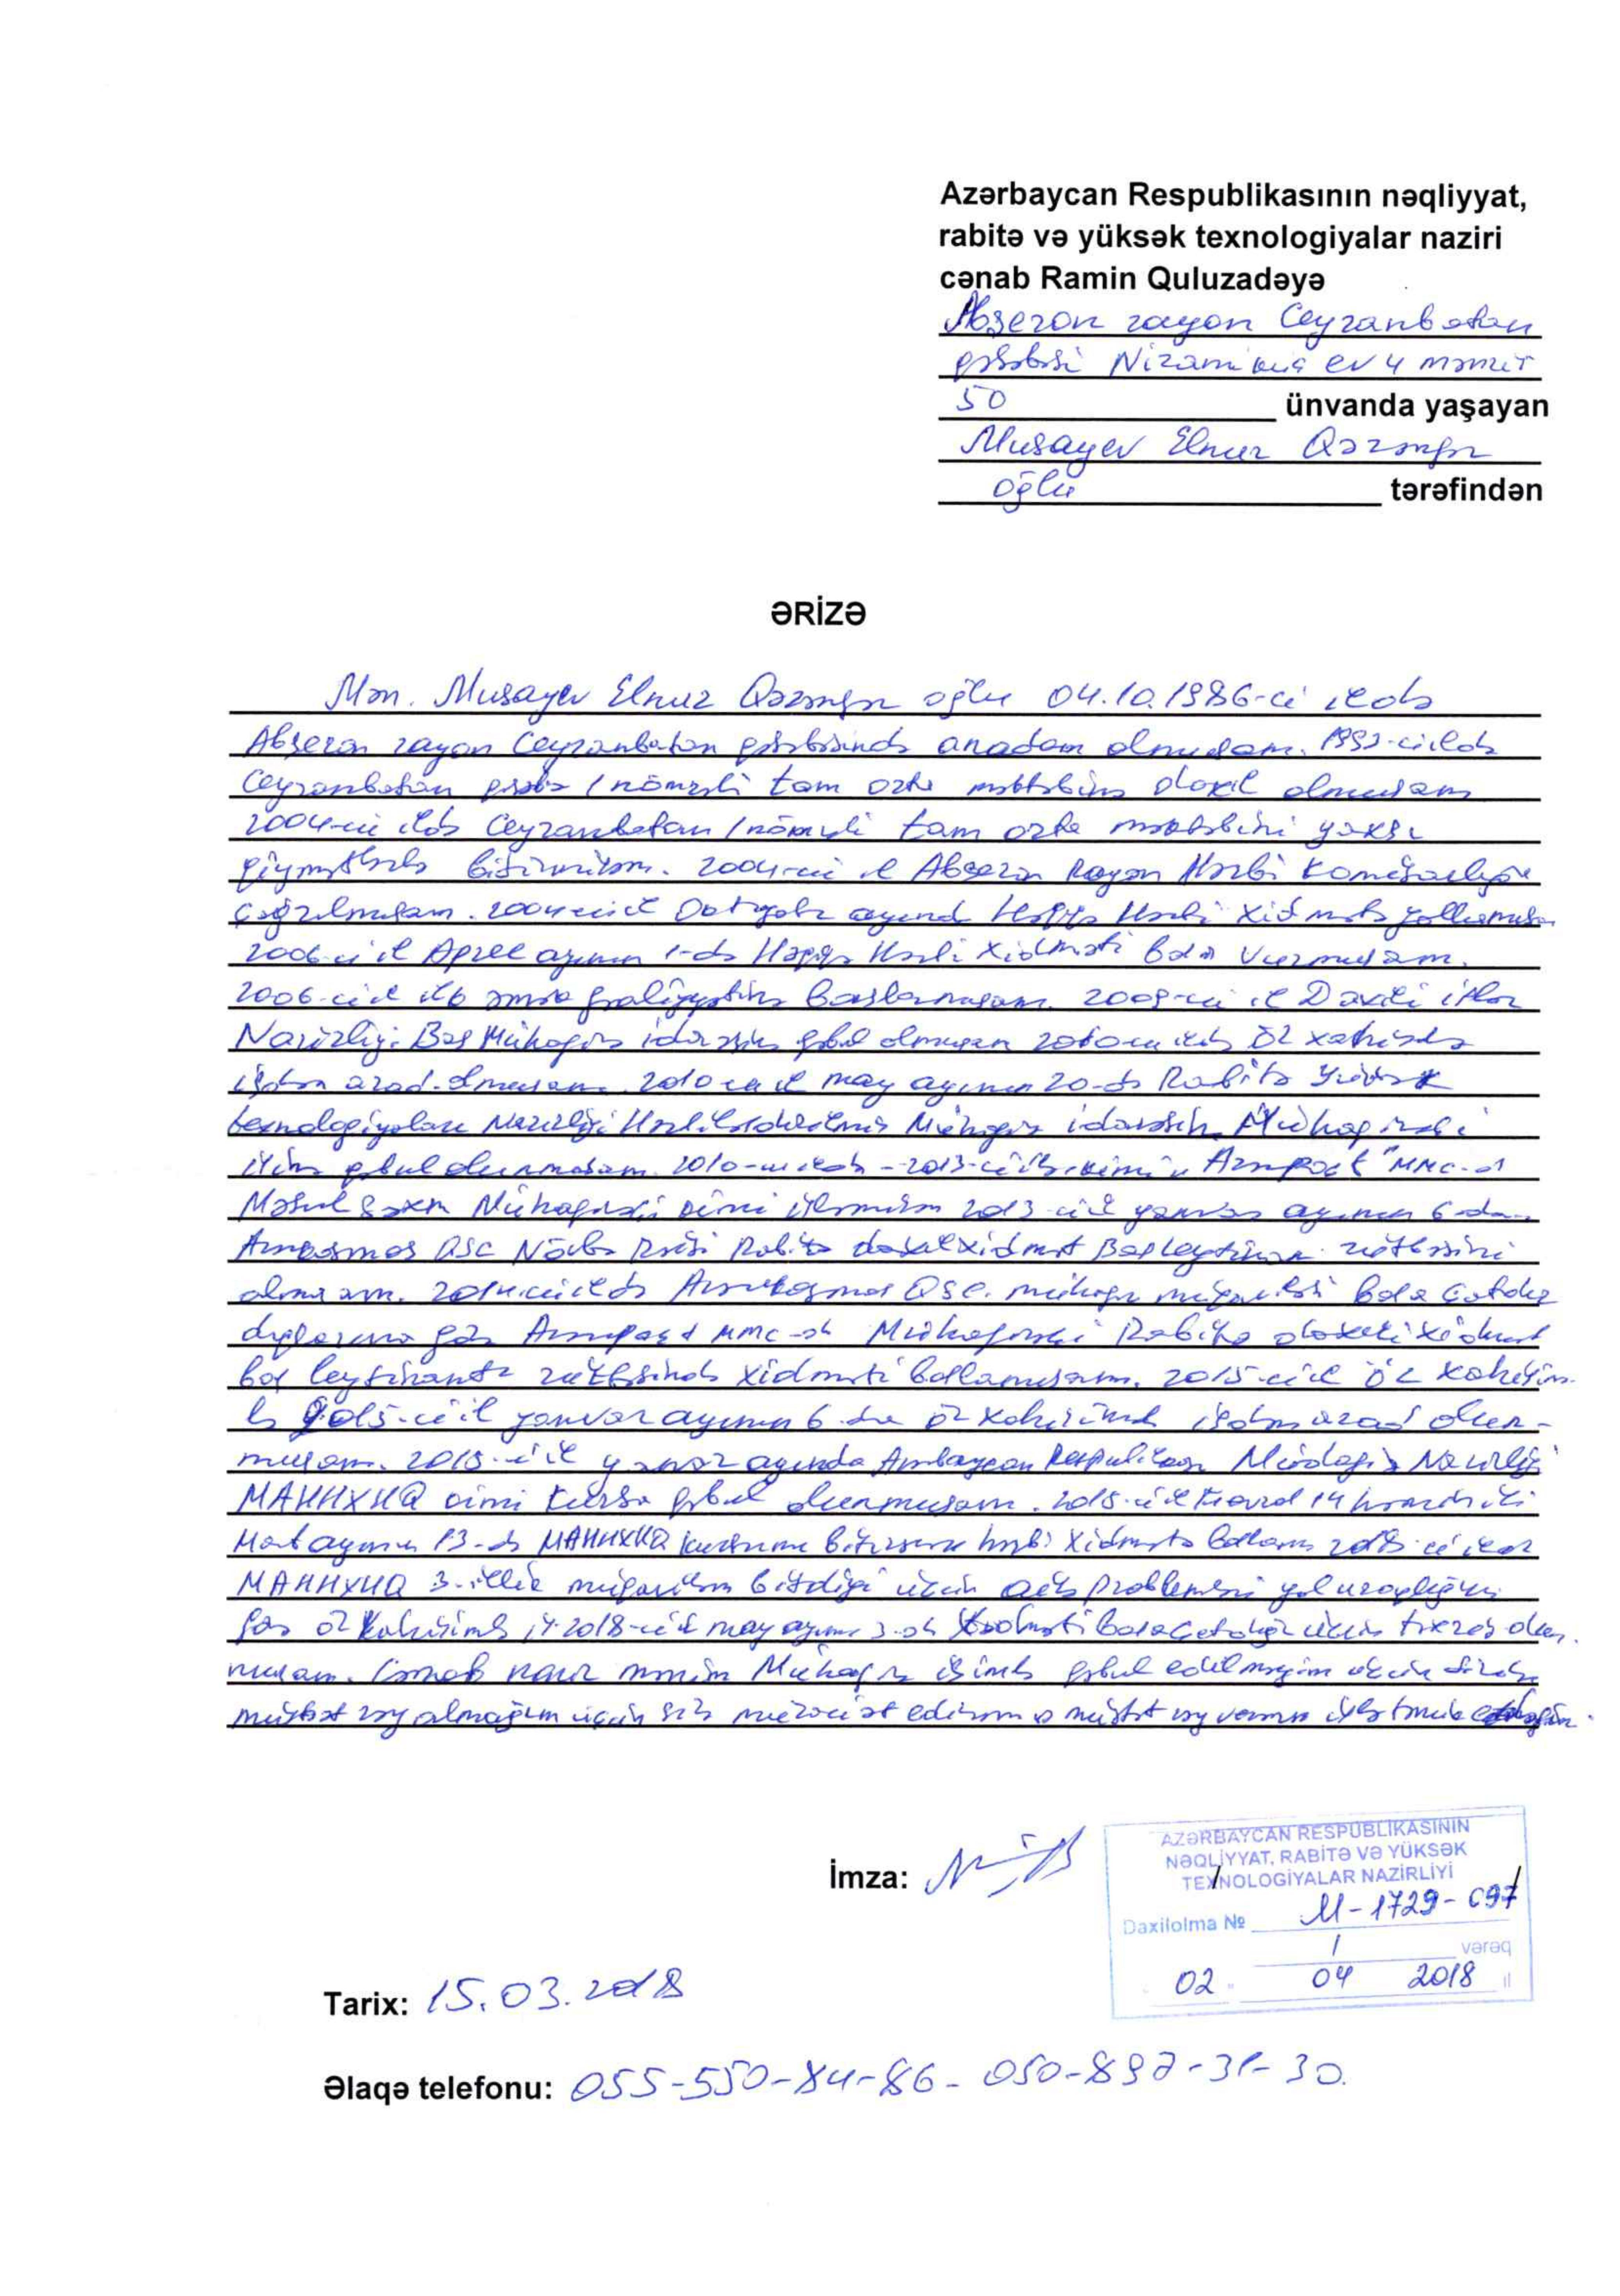 Azərbaycan Respublikasının nəqliyyat,
rabitə və yüksək texnologiyalar naziri
cənab Ramin Quluzadəyə
Abşeron rayon Ceyranbatan
qəsəbəsi Nizami küç ev 4 mənzil
50 ünvanda yaşayan
Musayev Elnur Qəzənfər
oğlu tərəfindən
ƏRİZƏ
Mən. Musayev Elnur Qəzənfər oğlu 04.10.1986-ci ildə
Abşeron rayon Ceyranbatan qəsəbəsində anadan olmuşam. 1993-cü ildə
Ceyranbatan qəsəbə 1 nömrəli tam orta məktəbinə daxil olmuşam
2004-cü ildə Ceyranbatan 1 nömrəli tam orta məktəbini yaxşı
qiymətlərlə bitirmişəm. 2004-cü il Abşeron Rayon Hərbi Komissarlığına
çağrılmışam. 2004-cü il Oktyabr ayında Həqiqi Hərbi xidmətə yollanmışam
2006-ci il Aprel ayının 1-də Həqiqi Hərbi xidməti başa vurmuşam.
2006-ci il əmək fəaliyyətinə başlamışam. 2008-ci il Daxili işlər
Nazirliyi Baş Mühafizə idarəsinə qəbul olmuşam 2010-cu ildə öz xahişimlə
işdən azad olmuşam. 2010 cu il may ayının 20-də Rabitə Yüksək
texnologiyaları Nazirliyi Hərbiləşdirilmiş Mühafizə idarəsinə Mühafizəçi
işinə qəbul olunmuşam. 2010-cu ildə - 2013-cü il kimi "Azərpoçt" MMC-də
Məsul şəxs Mühafizəçi kimi işləmişəm 2013-cü il yanvar ayının 6-dan
Azərkosmos ASC Növbə Rəisi Rabitə daxil xidmət Baş leytinant rütbəsini
almışam. 2014-cü ildə Azərkosmos QSC. mühafizə müqaviləsi başa çatdığı
Azərpoçt MMC-də Mühafizəçi Rabitə daxili xidmət
baş leytinantı rütbəsində xidməti başlamışam. 2015-ci il öz xahişim-
lə 2015-ci il yanvar ayının 6-da öz xahişimlə işdən azad olun-
muşam. 2015-ci il yanvar ayında Azərbaycan Respublikası Müdafiə Nazirliyi
MAHHXHQ kimi kursa qəbul olunmuşam. 2015-ci il
Mart ayının 13-də MAHHXHQ kursunu bitirərək hərbi xidmətə
MAHHXHQ 3-illik müqaviləm bitdiyi üçün ailə problemləri
görə öz xahişimlə 2018-ci il may ayının 3-də başa çatdığı üçün tərxis olun.
muşam. Cənab nazir mənim Mühafizə işimə qəbul edilməyim üçün sizdən
müsbət rəy almağım üçün sizə müraciət edirəm müsbət rəy
İmza:
AZƏRBAYCAN RESPUBLİKASININ
NƏQLİYYAT, RABİTƏ VƏ YÜKSƏK
TEXNOLOGİYALAR NAZİRLİYİ
Daxilolma № M-1729-C97
1 vərəq
02 04 2018 il
Tarix: 15.03.2018
Əlaqə telefonu: 055-550-84-86- 050-892-31-30.